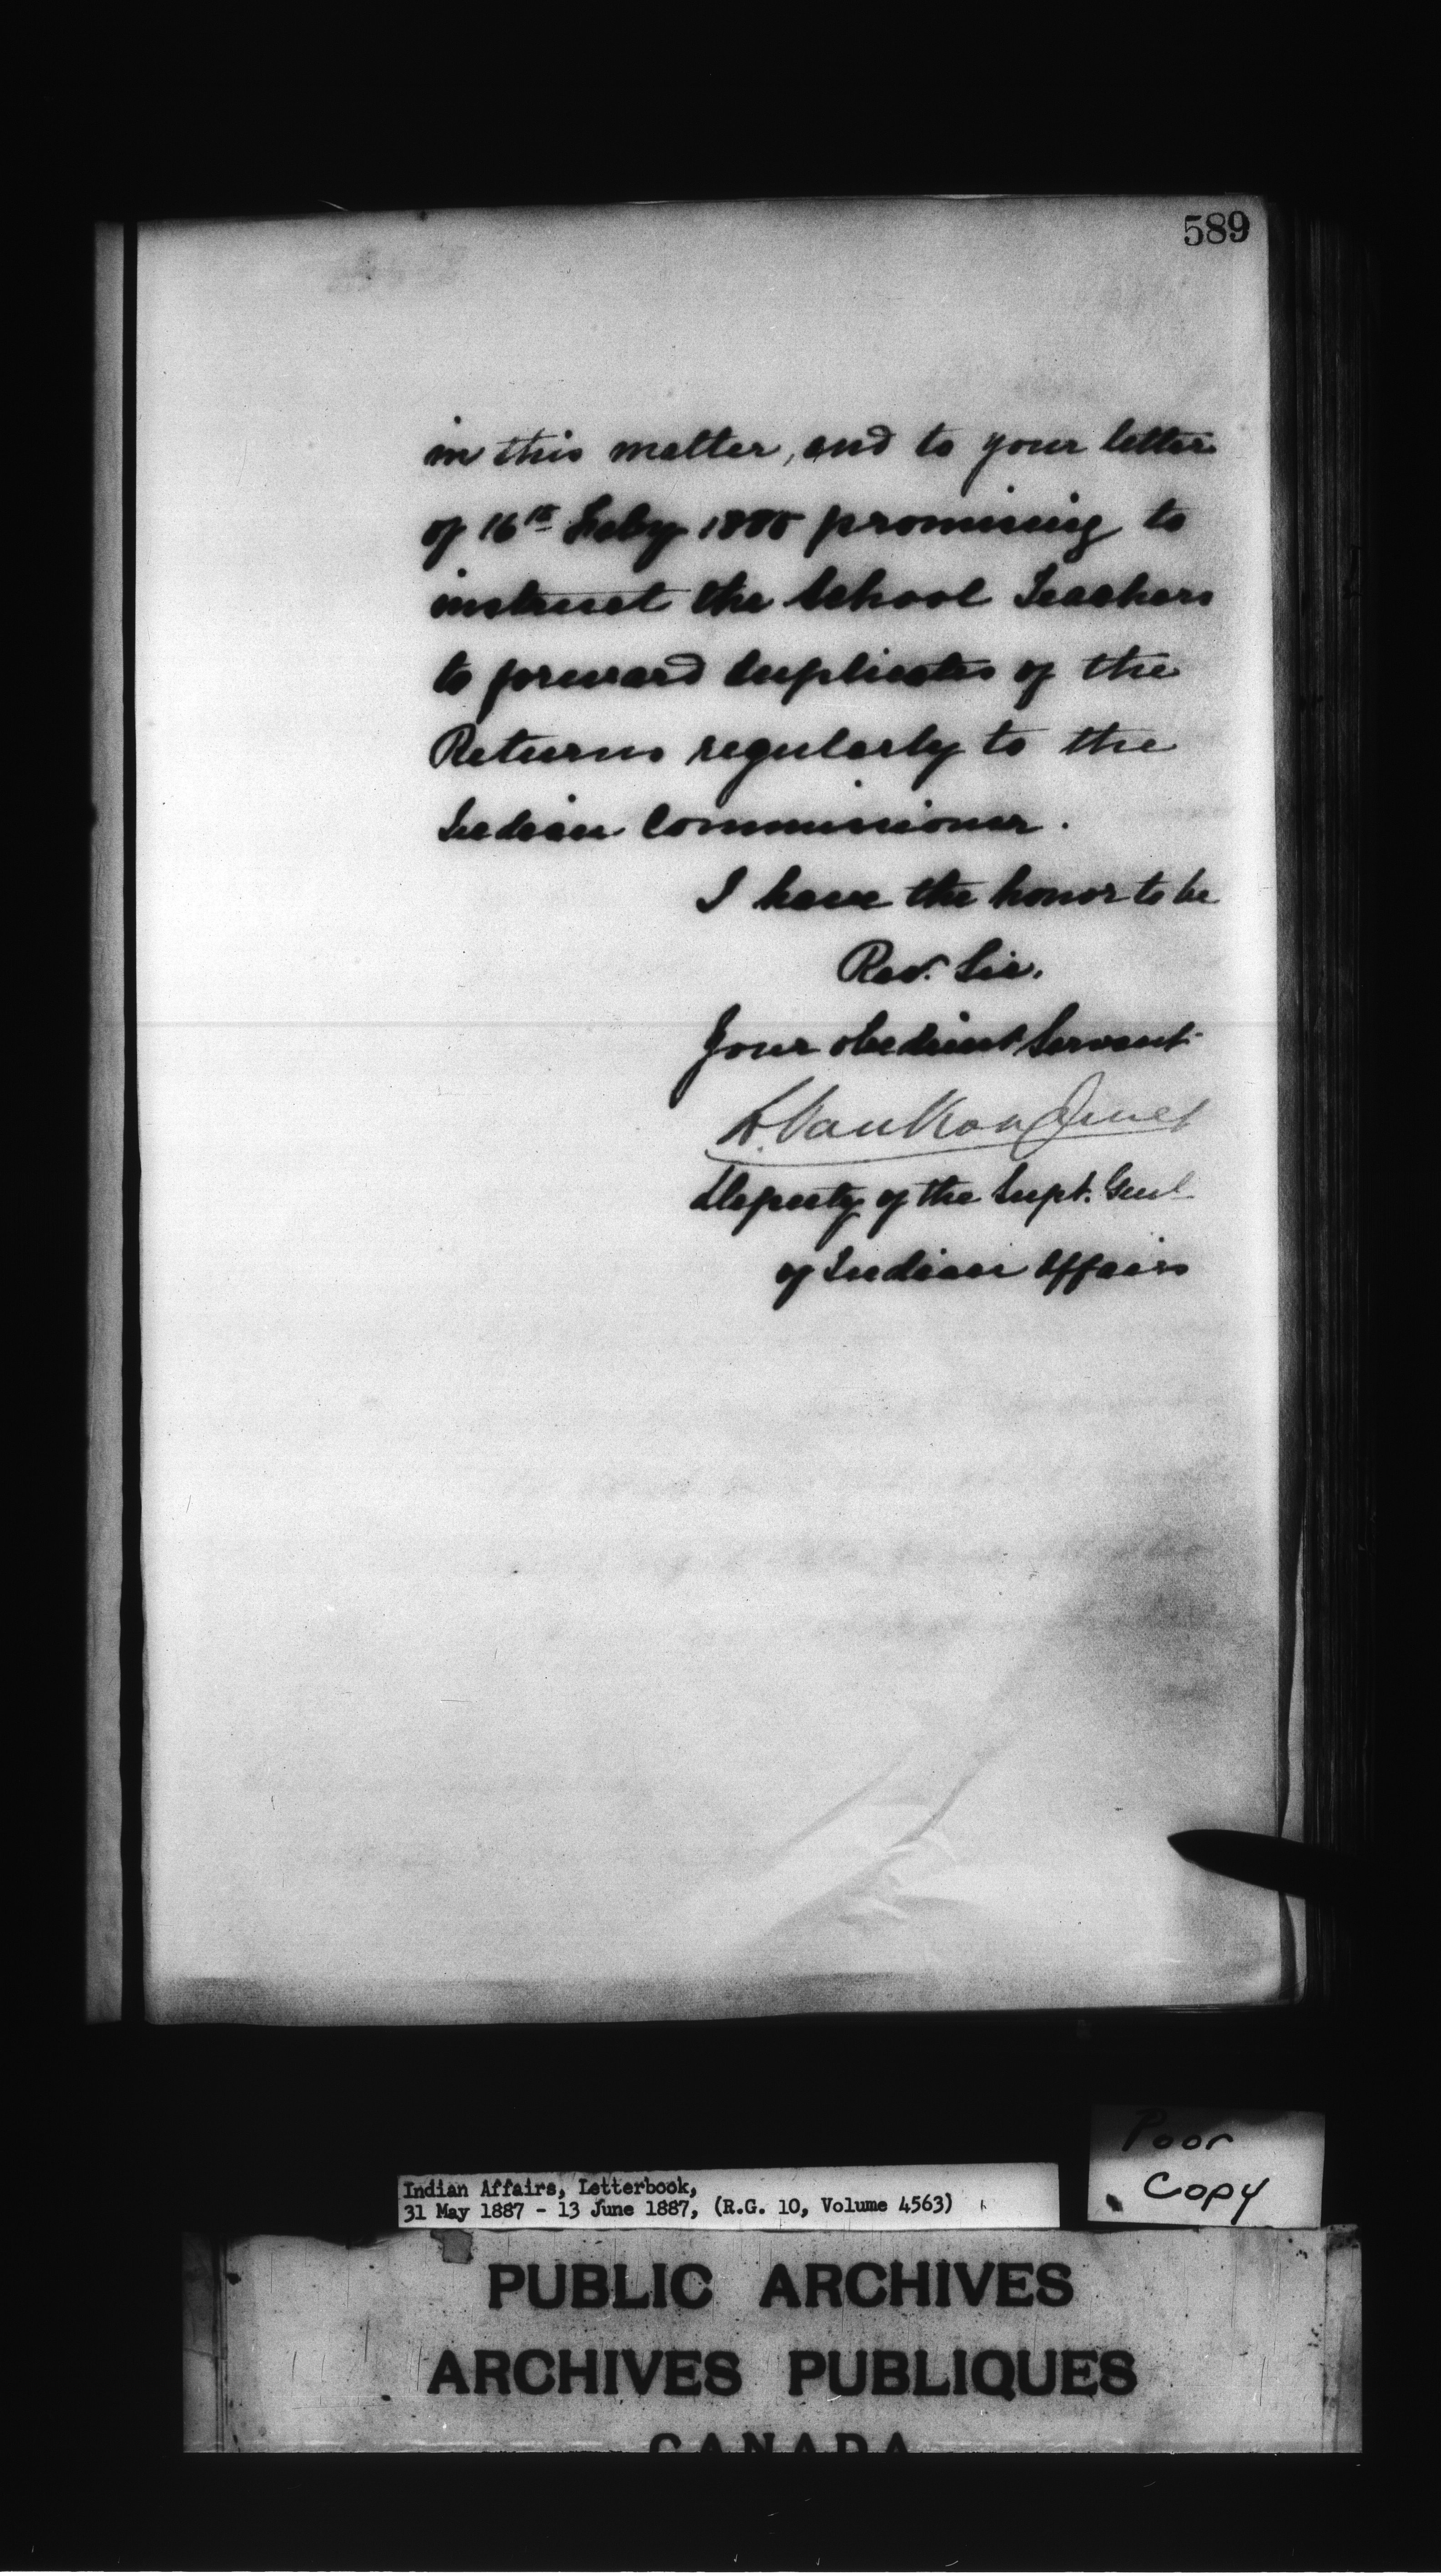 589
in this matter, and to your letter
of 16th Feby promising to
instruct the School Teachers
to forward duplicates of the
Returns regularly to the
Indian Commissioner.
I have the honor to be
Rev. Sir,
Your obedient Servant
L. VanKoughnet
Deputy of the Supt. Genl
of Indian Affairs
Poor
Copy
Indian Affairs, Letterbook,
31 May 1887 - 13 June 1887, (R.G. 10, Volume 4563)
PUBLIC ARCHIVES
ARCHIVES PUBLIQUES
CANADA